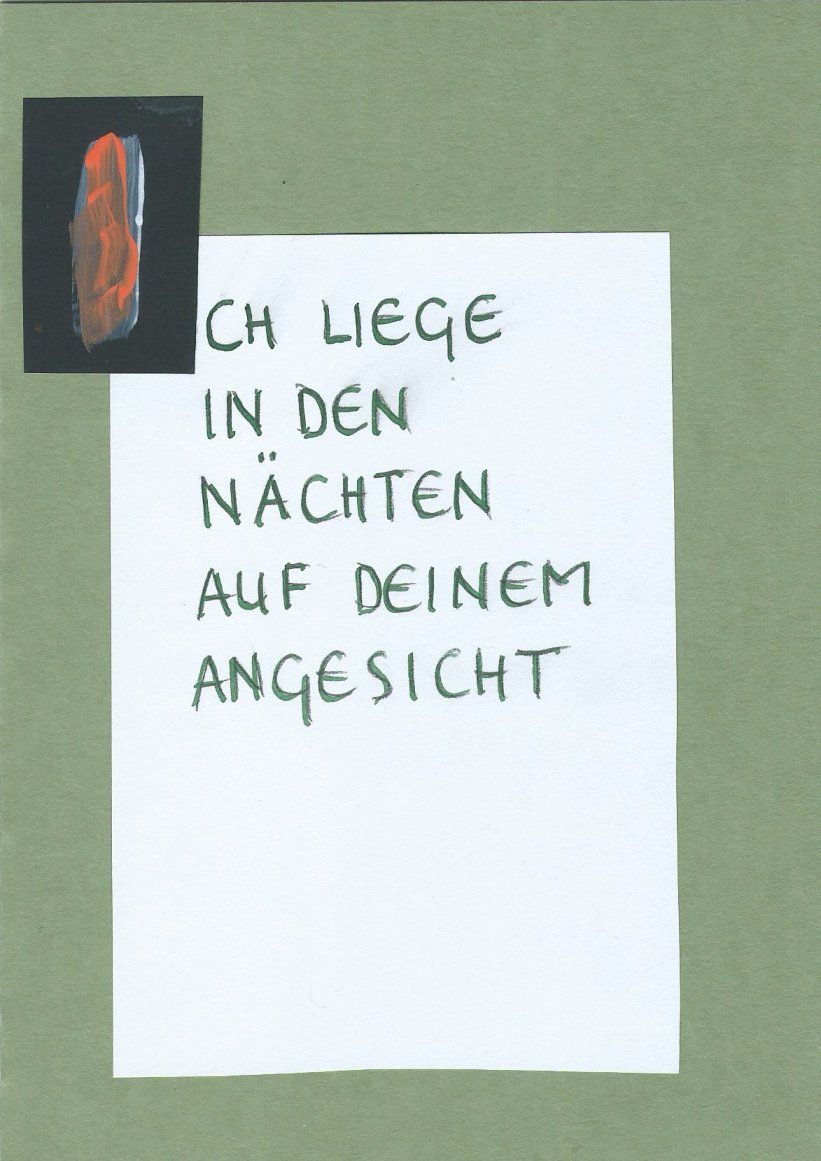 ICH LIEGE
IN DEN
NÄCHTEN
AUF DEINEM
ANGESICHT